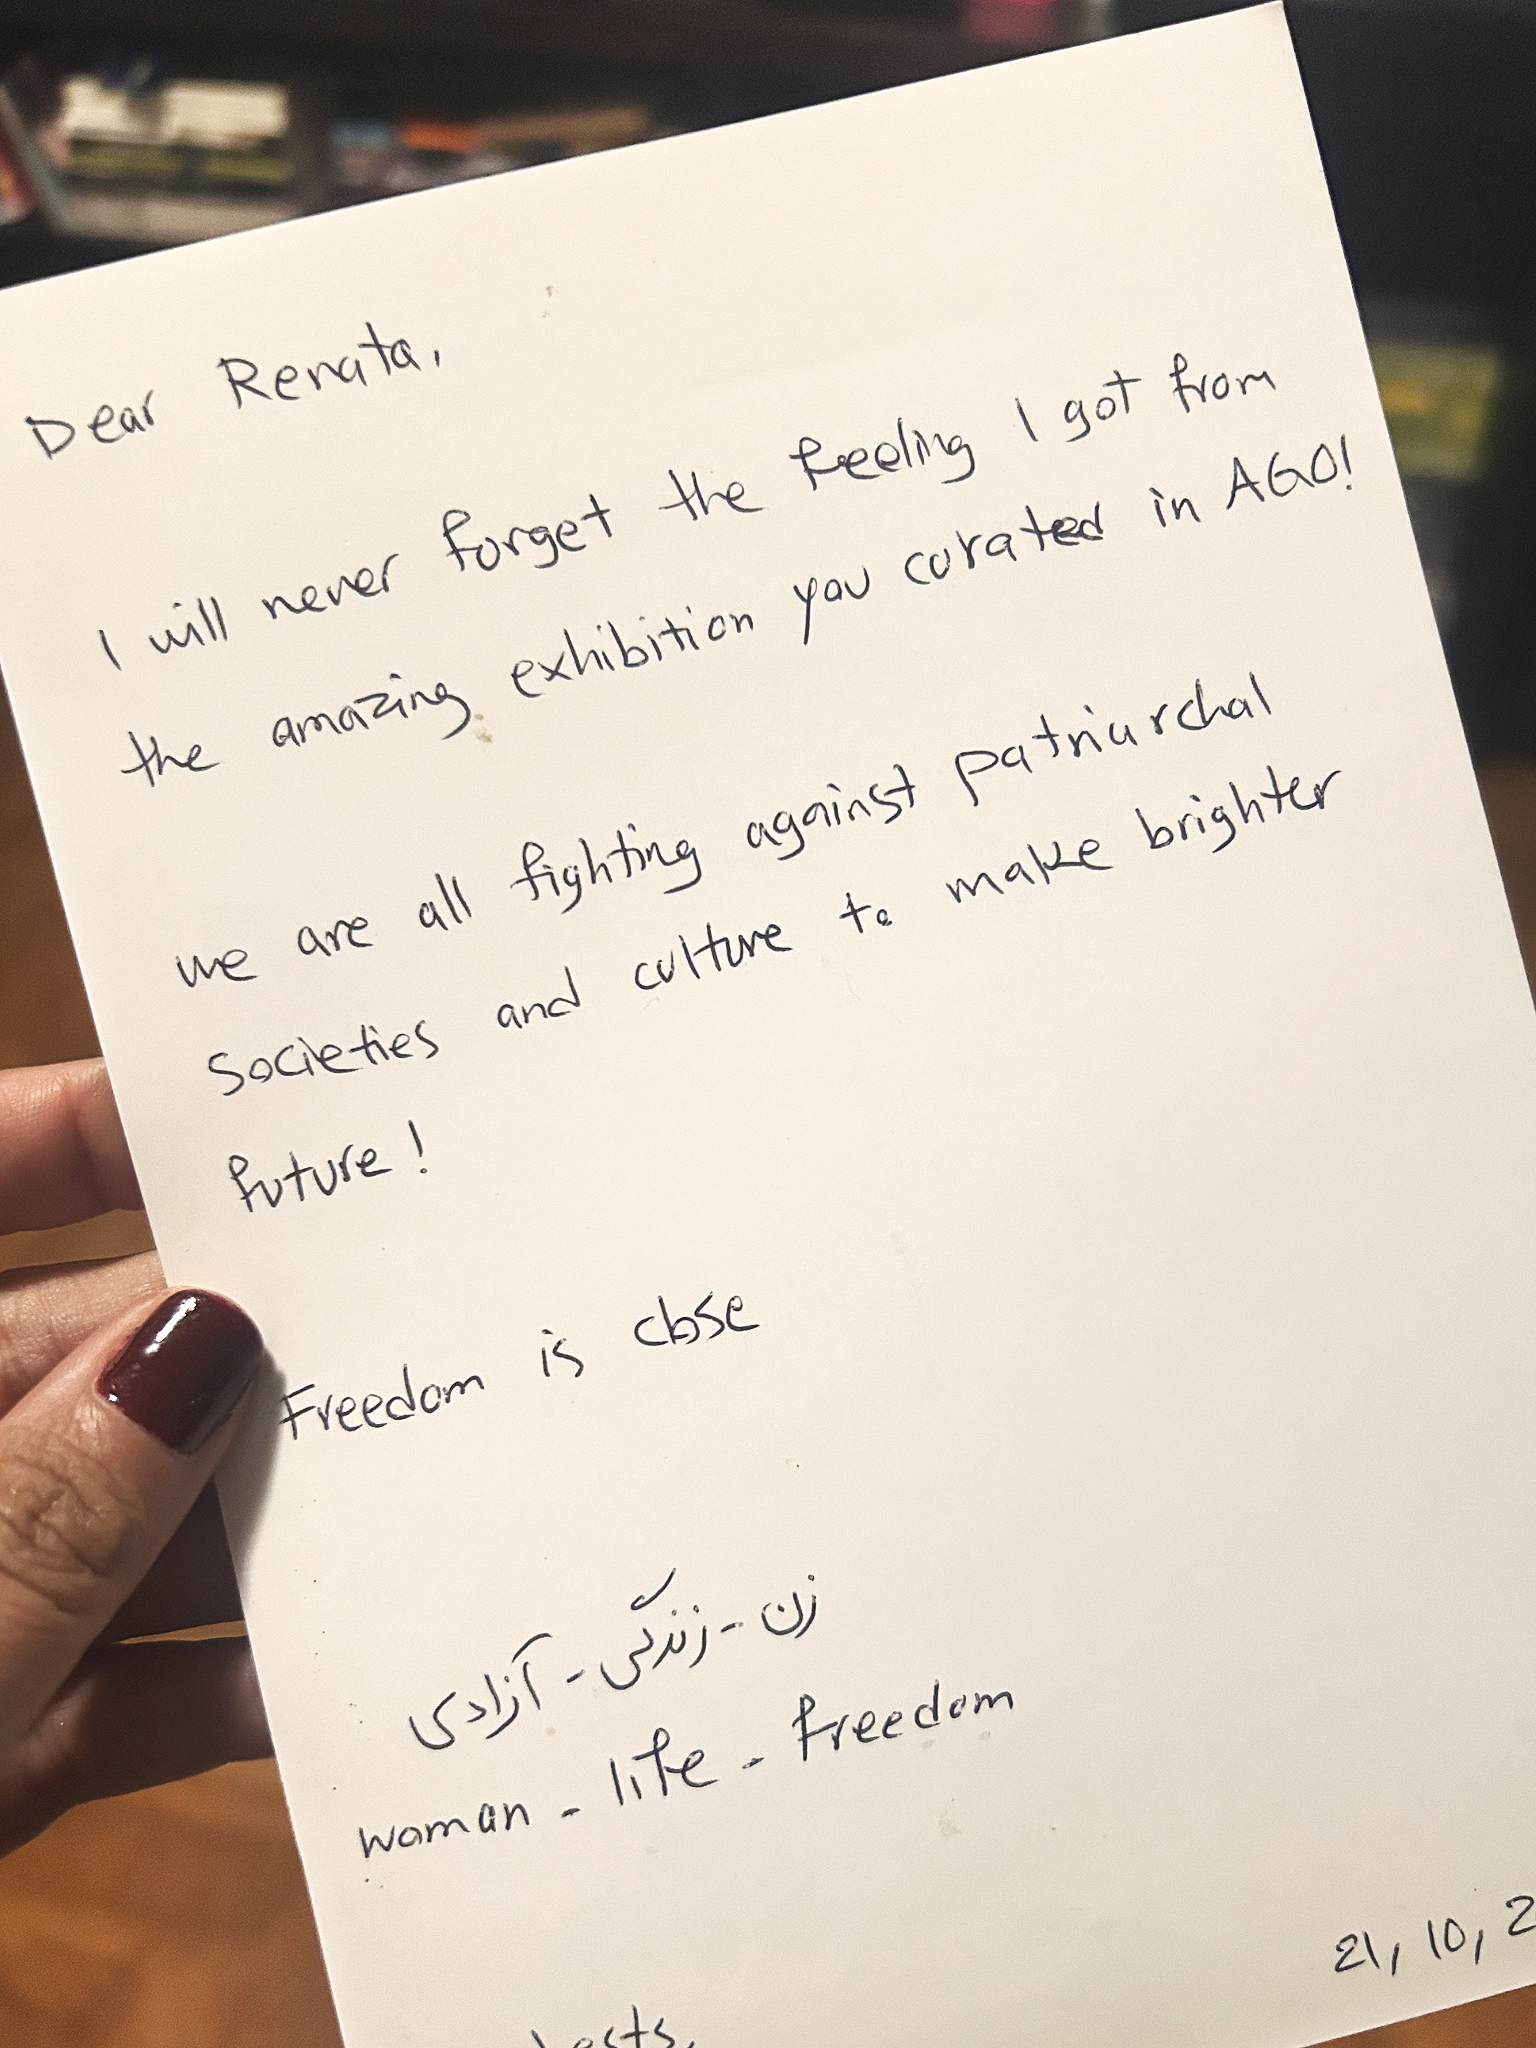 Dear Renata,
I will never forget the feeling I got from
the amazing exhibition you curated in AGO!
we are all fighting against patriarchal
societies and culture to make brighter
future!
Freedom is close
زن - زندگی - آزادی
woman - life - freedom
21, 10, 2
bests,